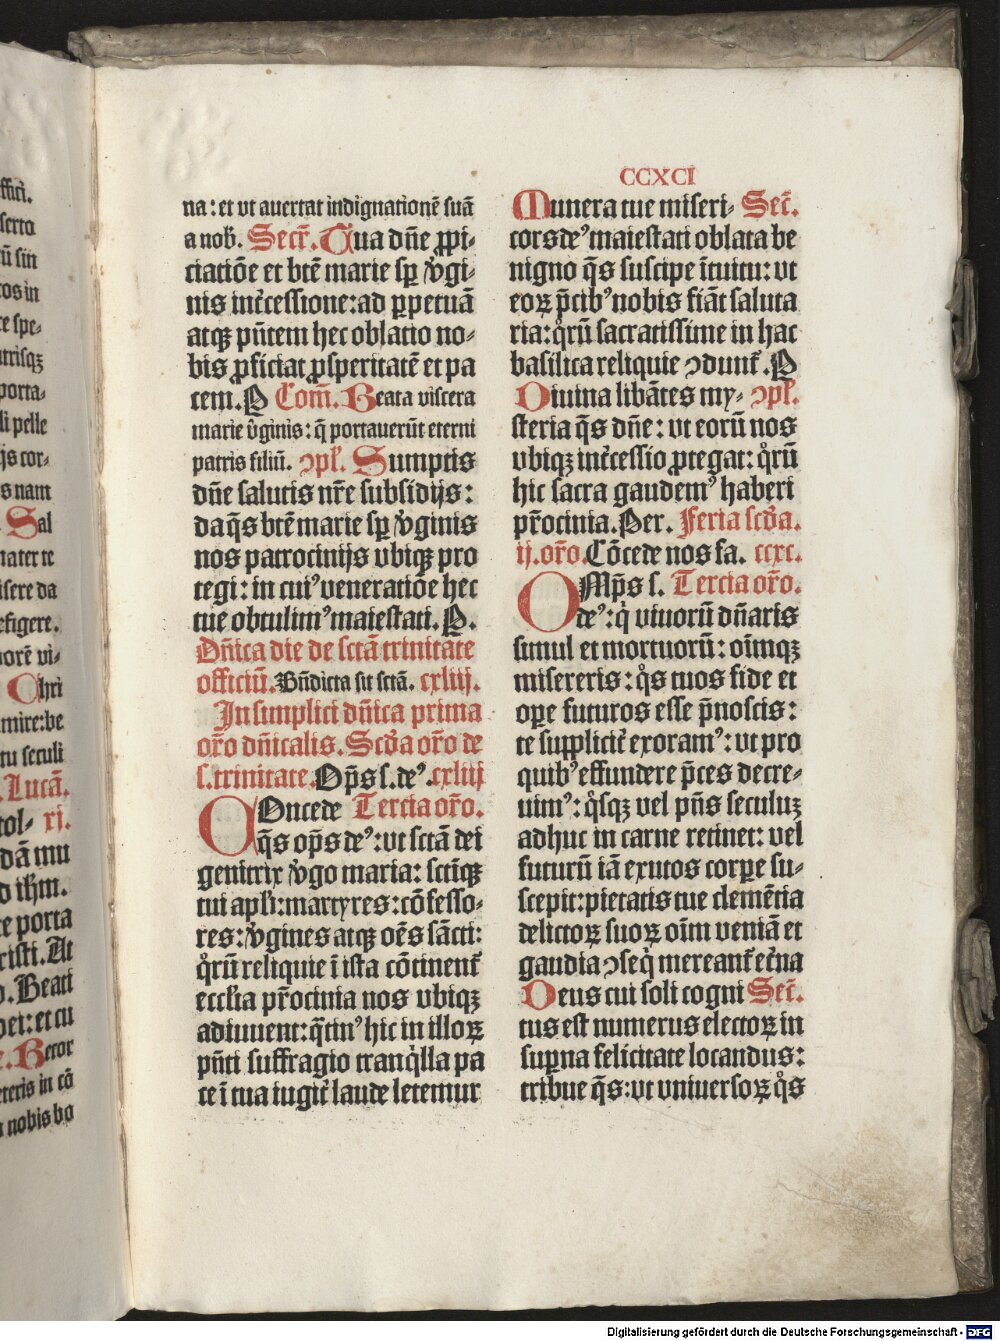 ffici.
serto
ū sin
cos in
te spe⸗
utrisqꝫ
porta⸗
li pelle
ijs cor⸗
s nam
Sal
nater te
isere da
efigere.
vi⸗
Chri
mire:be
tu seculi
Lucā.
tol⸗ xi.
dā mu
d ihm̄.
te porta
risti. At
Beati
dei: et cu
Retor
eteris in cō
nobis bo
CCXCI
na: et vt auertat indignationē suā
a nob̄. Secr̄. Tua dn̄e ꝓpi⸗
ciatiōe et btē marie sꝑ v̓gi⸗
nis int̄cessione: ad ꝑpetuā
atqꝫ pn̄tem hec oblatio no⸗
bis ꝓficiat ꝓsperitatē et pa
cem. P Com̄. Beata viscera
marie v̓ginis: q̄ portauerūt eterni
patris filiū. ꝯpl̄. Sumptis
dn̄e salutis nr̄e subsidijs:
da q̄s btē marie sꝑ v̓ginis
nos patrocinijs vbiqꝫ pro
tegi: in cuiꝰ veneratiōe hec
tue obtulimꝰ maiestati. P.
Dn̄ica die de sctā trinitate
officiū. Bn̄dicta sit sctā. cxliij.
In simplici dn̄ica prima
orō dn̄icalis. Scd̄a orō de
s. trinitate. Op̄s s. deꝰ. cxliij
COncede Tercia orō.
q̄s op̄s deꝰ: vt sctā dei
genitrix v̓go maria: sctiqꝫ
tui apl̄i: martyres: cōfesso⸗
res: v̓gines atqꝫ oēs sācti:
qͦrū reliquie ī ista cōtinent̄
eccl̄ia pr̄ocinia nos vbiqꝫ
adiuuent: q̄tinꝰ hic in illoꝝ
pn̄ti suffragio tranqͥlla pa
ce ī tua iugit̄ laude letemur
Munera tue miseri⸗ Secr̄.
cors deꝰ maiestati oblata be
nigno q̄s suscipe ītuitu: vt
eoꝝ p̄cibꝰ nobis fiāt saluta
ria: qͦrū sacratissime in hac
basilica reliquie ꝯdunt̄. P
Diuina libātes my⸗ ꝯpl̄.
steria q̄s dn̄e: vt eorū nos
vbiqꝫ int̄cessio ꝓtegat: qͦrū
hic sacra gaudemꝰ haberi
pr̄ocinia. Per. Feria scd̄a.
ij. orō. Cōcede nos fa. ccxc.
OMp̄s s. Tercia orō.
deꝰ: qͥ viuorū dn̄aris
simul et mortuorū: oīmqꝫ
misereris: qͦs tuos fide et
oꝑe futuros esse p̄noscis:
te supplicit̄ exoramꝰ: vt pro
quibꝰ effundere p̄ces decre⸗
uimꝰ: qͦsqꝫ vel pn̄s seculuꝫ
adhuc in carne retinet: vel
futurū iā exutos corꝑe su⸗
scepit: pietatis tue clemētia
delictoꝝ suoꝝ oīm veniā et
gaudia ꝯseqͥ mereant̄ et̄na
Deus cui soli cogni Secr̄.
tus est numerus electoꝝ in
suꝑna felicitate locandus:
tribue q̄s: vt vniuersoꝝ qͦs
Digitalisierung gefördert durch die Deutsche Forschungsgemeinschaft - DFG